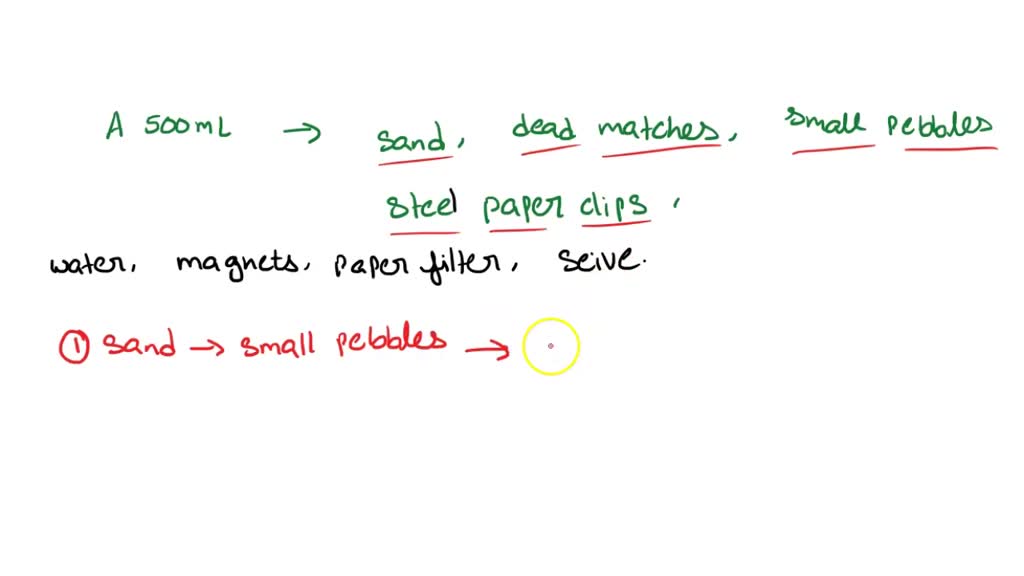 A 500mL → sand, dead matches, small pebbles
steel paper clips,
water, magnets, paper filter, seive.
① sand → small pebbles →